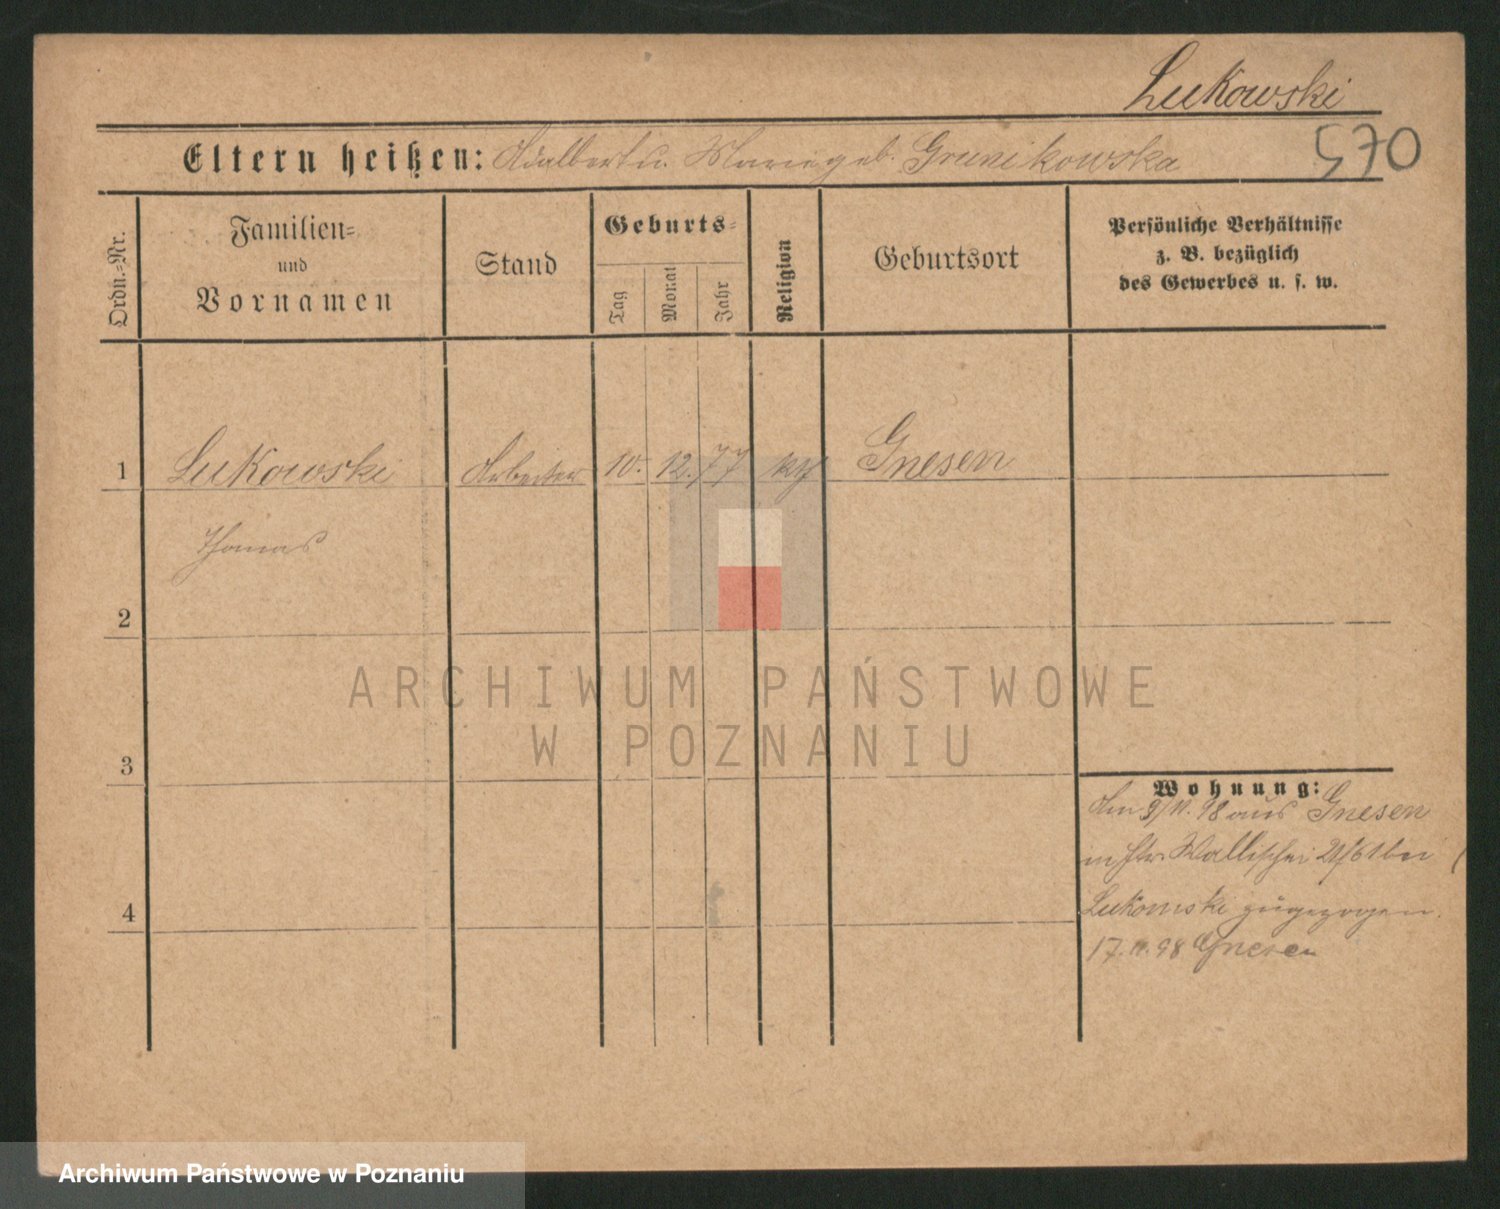 Lukowski
570
Eltern heißen: Adalbert u. Marie geb. Grunikowska
Ordn.-Nr.
Familien-
und
Vornamen
Stand
Geburts-
Tag
Monat
Jahr
Religion
Geburtsort
Persönliche Verhältnisse
z. B. bezüglich
des Gewerbes u. s. w.
1 Lukowski Arbeiter 10. 12. 77 kth Gnesen
Thomas
2
3
4
Wohnung:
Am 9/11. 98 aus Gnesen
Wallischei bei
Lukowski zugezogen.
17.11.98 Gnesen
ARCHIWUM PAŃSTWOWE
W POZNANIU
Archiwum Państwowe w Poznaniu